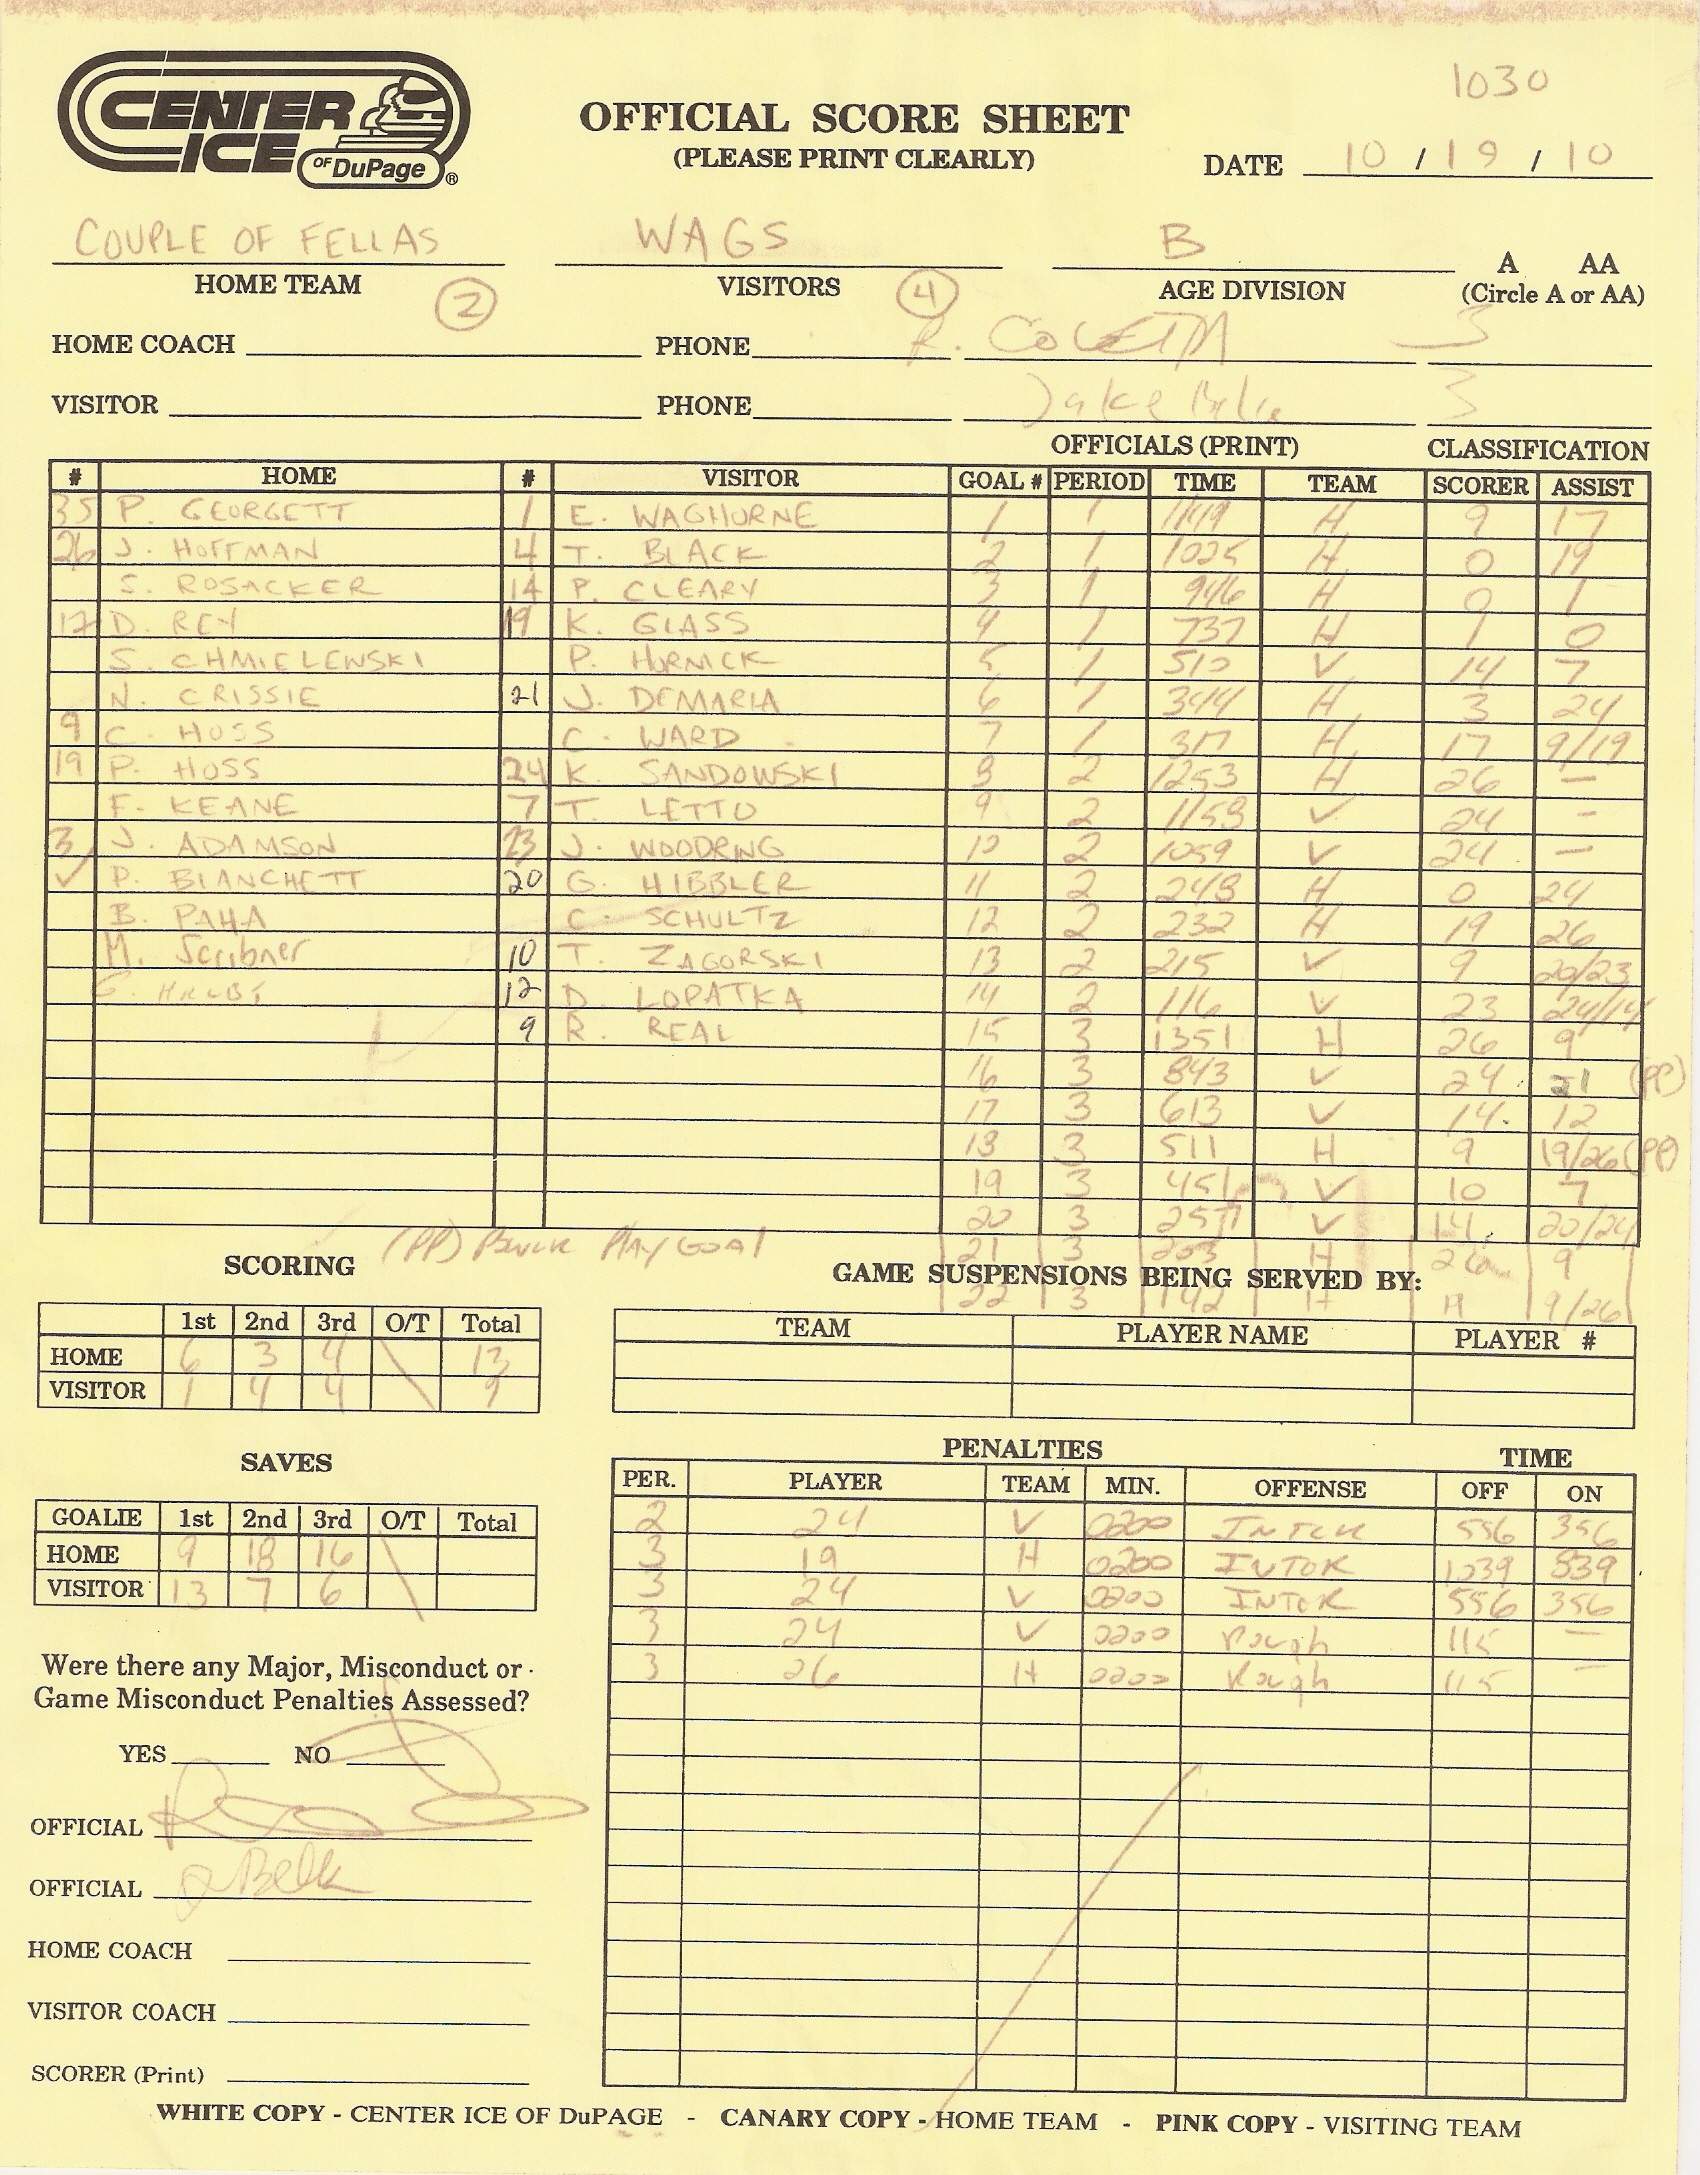 1030
CENTER ICE OF DuPage ®
OFFICIAL SCORE SHEET
(PLEASE PRINT CLEARLY)
DATE 10 / 19 / 10
COUPLE OF FELLAS WAGS B
HOME TEAM VISITORS AGE DIVISION A AA
2 4 (Circle A or AA)
HOME COACH PHONE R. 3
VISITOR PHONE Jake 3
OFFICIALS (PRINT) CLASSIFICATION
# HOME # VISITOR GOAL # PERIOD TIME TEAM SCORER ASSIST
35 P. GEORGETT 1 E. WAGHORNE 1 1 1149 H 9 17
26 J. HOFFMAN 4 T. BLACK 2 1 1025 H 0 19
S. ROSACKER 14 P. CLEARY 3 1 946 H 0 1
17 D. REY 19 K. GLASS 4 1 737 H 1 0
S. CHMIELEWSKI P. HORNICK 5 1 510 V 14 7
N. CRISSIE 21 J. DEMARIA 6 1 344 H 3 24
9 C. HOSS C. WARD 7 1 317 H 17 9/19
19 P. HOSS 24 K. SANDOWSKI 8 2 1253 H 26 —
F. KEANE 7 T. LETTO 9 2 1158 V 24 -
3 J. ADAMSON 23 J. WOODRING 10 2 1059 V 24 —
✓ P. BIANCHETT 20 G. HIBBLER 11 2 248 H 0 24
B. PAHA C. SCHULTZ 12 2 232 H 19 26
M. Scribner 10 T. ZAGORSKI 13 2 215 V 9 20/23
12 D. LOPATKA 14 2 116 V 23 24/14
9 R. REAL 15 3 1351 H 26 9
16 3 843 V 24 21 (PP)
17 3 613 V 14 12
18 3 511 H 9 19/26 (PP)
19 3 451 V 10 7
20 3 257 V 14 20/24
(PP) POWER PLAY GOAL 21 3 203 H 26 9
SCORING GAME SUSPENSIONS BEING SERVED BY:
22 3 142 H 19 9/26
1st 2nd 3rd O/T Total TEAM PLAYER NAME PLAYER #
HOME 6 3 4 13
VISITOR 1 4 4 9
SAVES PENALTIES TIME
PER. PLAYER TEAM MIN. OFFENSE OFF ON
GOALIE 1st 2nd 3rd O/T Total 2 24 V 0200 INTER 556 356
HOME 9 18 16 3 19 H 0200 INTOR 1039 839
VISITOR 13 7 6 3 24 V 0200 INTER 556 356
3 24 V 0200 Rough 115 —
Were there any Major, Misconduct or 3 26 H 0200 Rough 115 -
Game Misconduct Penalties Assessed?
YES NO
OFFICIAL
OFFICIAL
HOME COACH
VISITOR COACH
SCORER (Print)
WHITE COPY - CENTER ICE OF DuPAGE - CANARY COPY - HOME TEAM - PINK COPY - VISITING TEAM